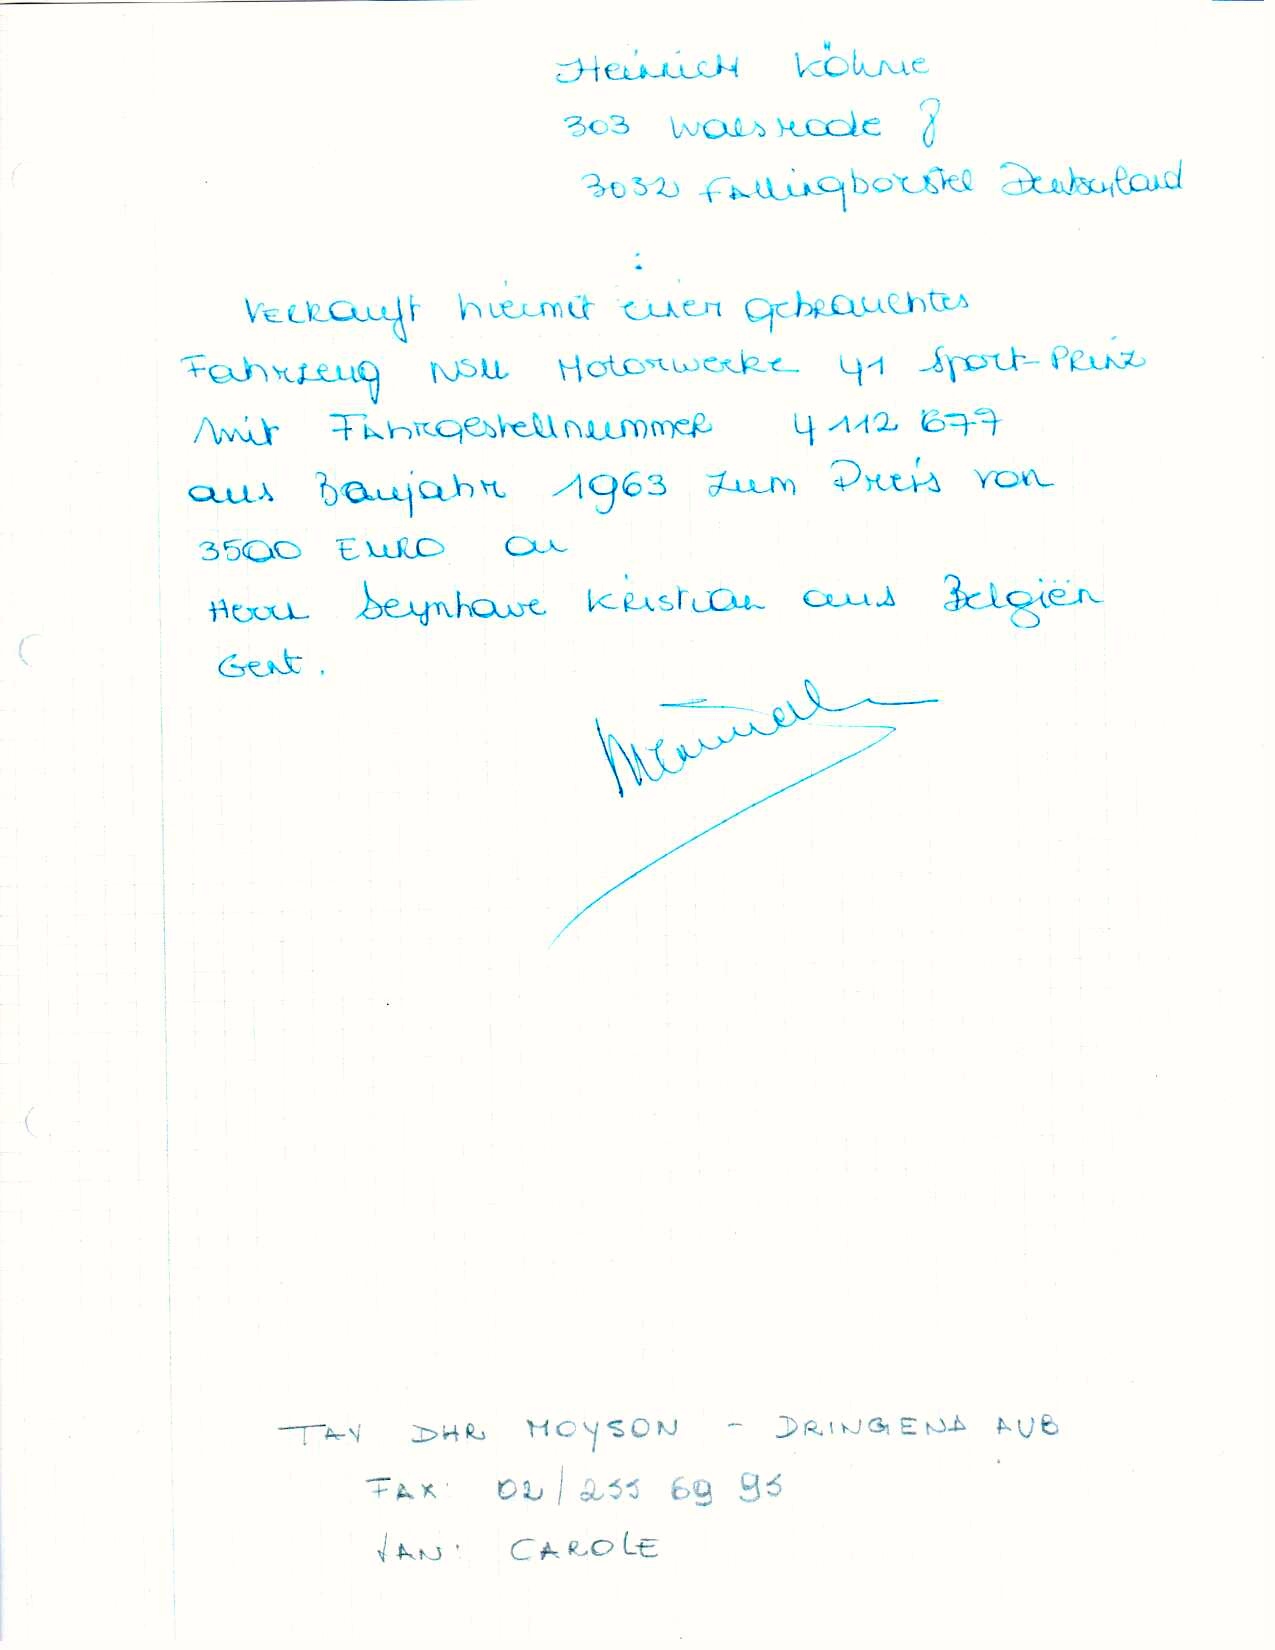 Heinrich Köhne
303 Walsrode 8
3032 Fallingborstel Deutschland
:
Verkauft hiermit einen gebrauchtes
Fahrzeug NSU Motorwerke 41 Sport-Prinz
mit Fahrgestellnummer 4 112 677
aus Baujahr 1963 zum Preis von
3500 EURO an
Herrn Seynhave Kristian aus Belgiën
Gent.
TAV DHR MOYSON - DRINGEND AUB
FAX: 02/255 69 95
VAN: CAROLE